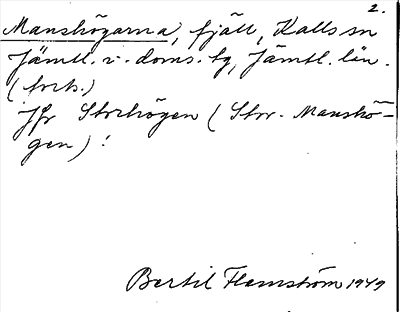 2.
Manshögarna, fjäll, Kalls sn
Jämtl. v. doms. tg, Jämtl. län.
(forts.)
Jfr Storhögen (Stor-Manshö-
gen):
Bertil Flemström 1949